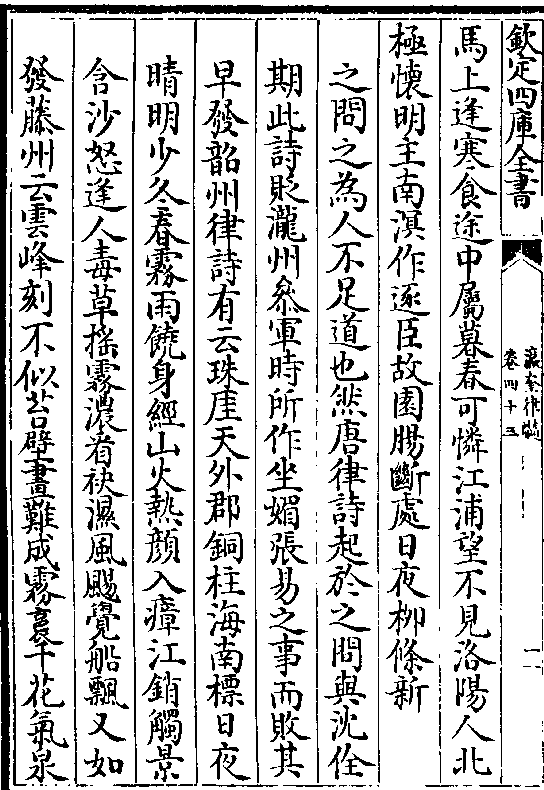 欽定四庫全書
瀛奎律髓
卷四十三
一
馬上逢寒食途中屬暮春可憐江浦望不見洛陽人北
極懷明主南溟作逐臣故園腸斷處日夜柳條新
之問之為人不足道也然唐律詩起於之問與沈佺
期此詩貶瀧州叅軍時所作坐媚張易之事而敗其
早發韶州律詩有云珠厓天外郡銅柱海南標日夜
晴明少冬春霧雨饒身經山火熱顔入瘴江銷觸景
含沙怒逢人毒草摇霧濃看袂濕風颺覺船飄又如
發藤州云雲峰刻不似苔壁畫難成霧裛千花氣泉